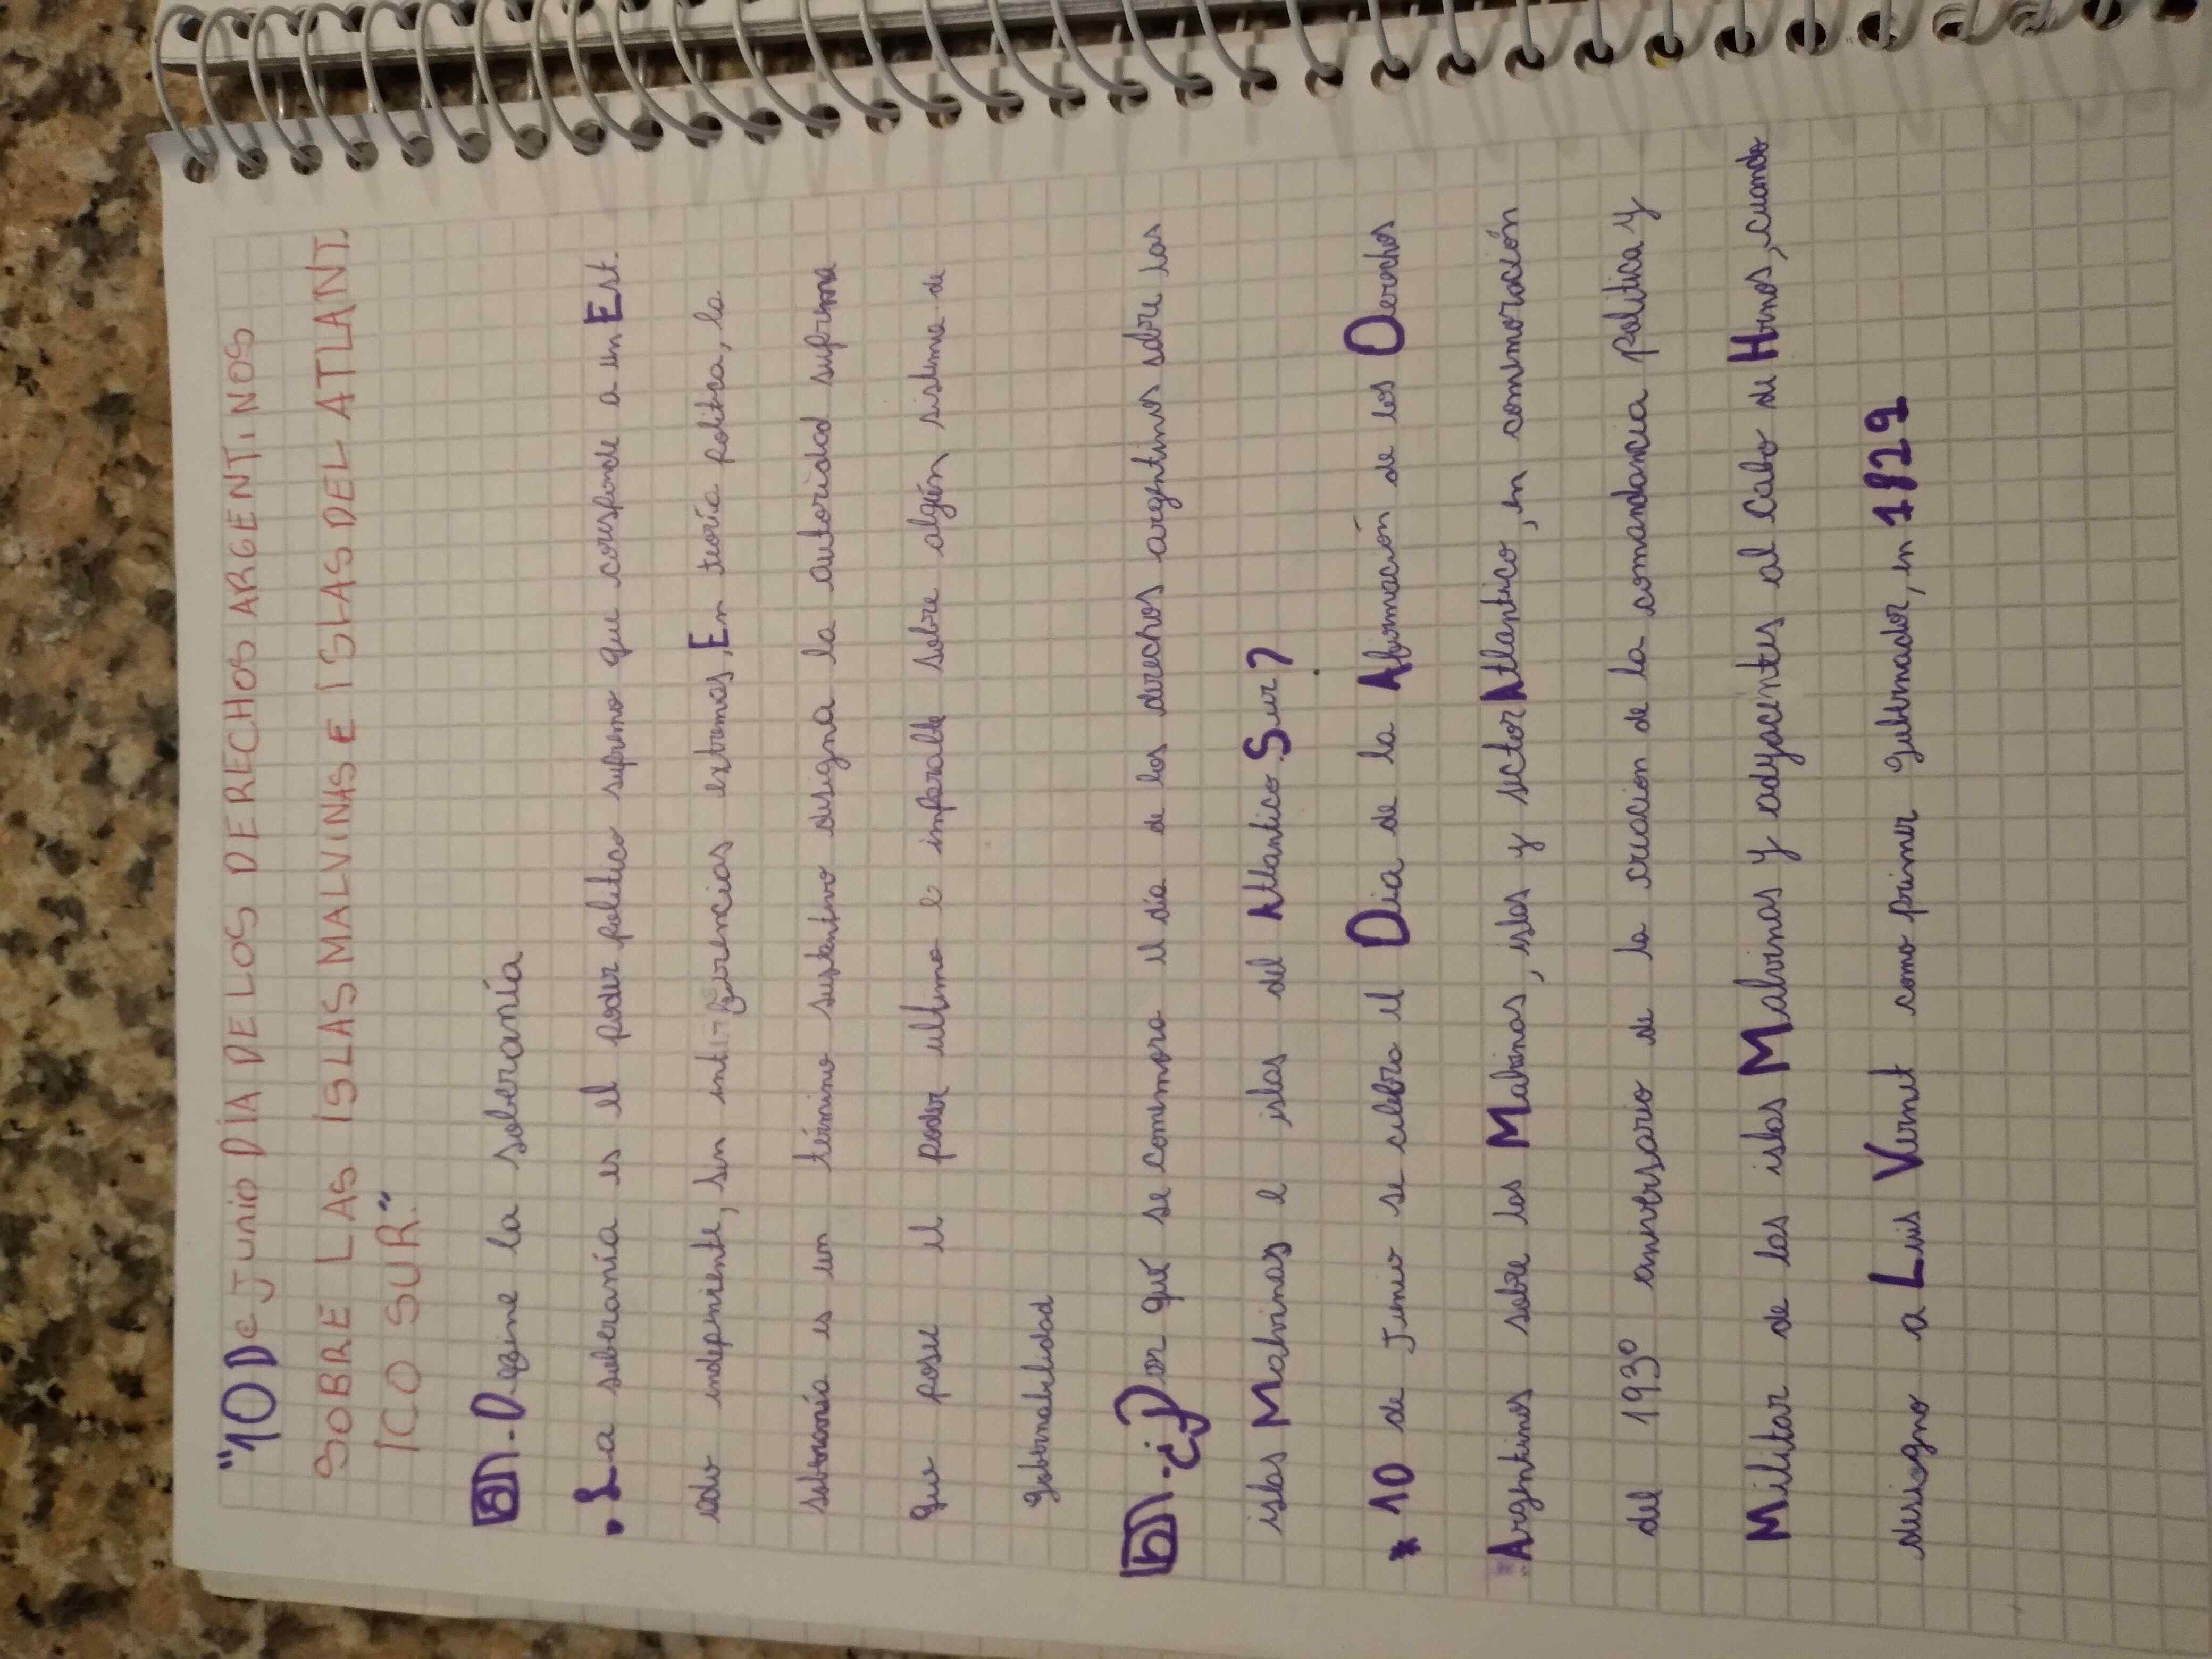 "10 De Junio DÍA DE LOS DERECHOS ARGENTINOS
SOBRE LAS ISLAS MALVINAS E ISLAS DEL ATLANT.
ICO SUR."
a)-Define la soberanía
• La soberanía es el poder politico supremo que corresponde a un Est.
ado independiente, sin interferencias extremas, En teoría politica, la
soberanía es un término sustantivo designa la autoridad suprema
que posee el poder ultimo e imperalte sobre algún sistema de
gobernabilidad
b)-¿Por qué se conmemora el día de los derechos argentinos sobre las
islas Malvinas e islas del Atlantico Sur?
* 10 de Junio se celebra el Dia de la Afirmación de los Derechos
Argentinos sobre las Malvinas, islas y sector Atlantico, en conmemoración
del 193º aniversario de la creación de la comandancia politica y
Militar de las islas Malvinas y adyacentes al Cabo de Hornos, cuando
designo a Luis Vernet como primer gubernador, en 1829